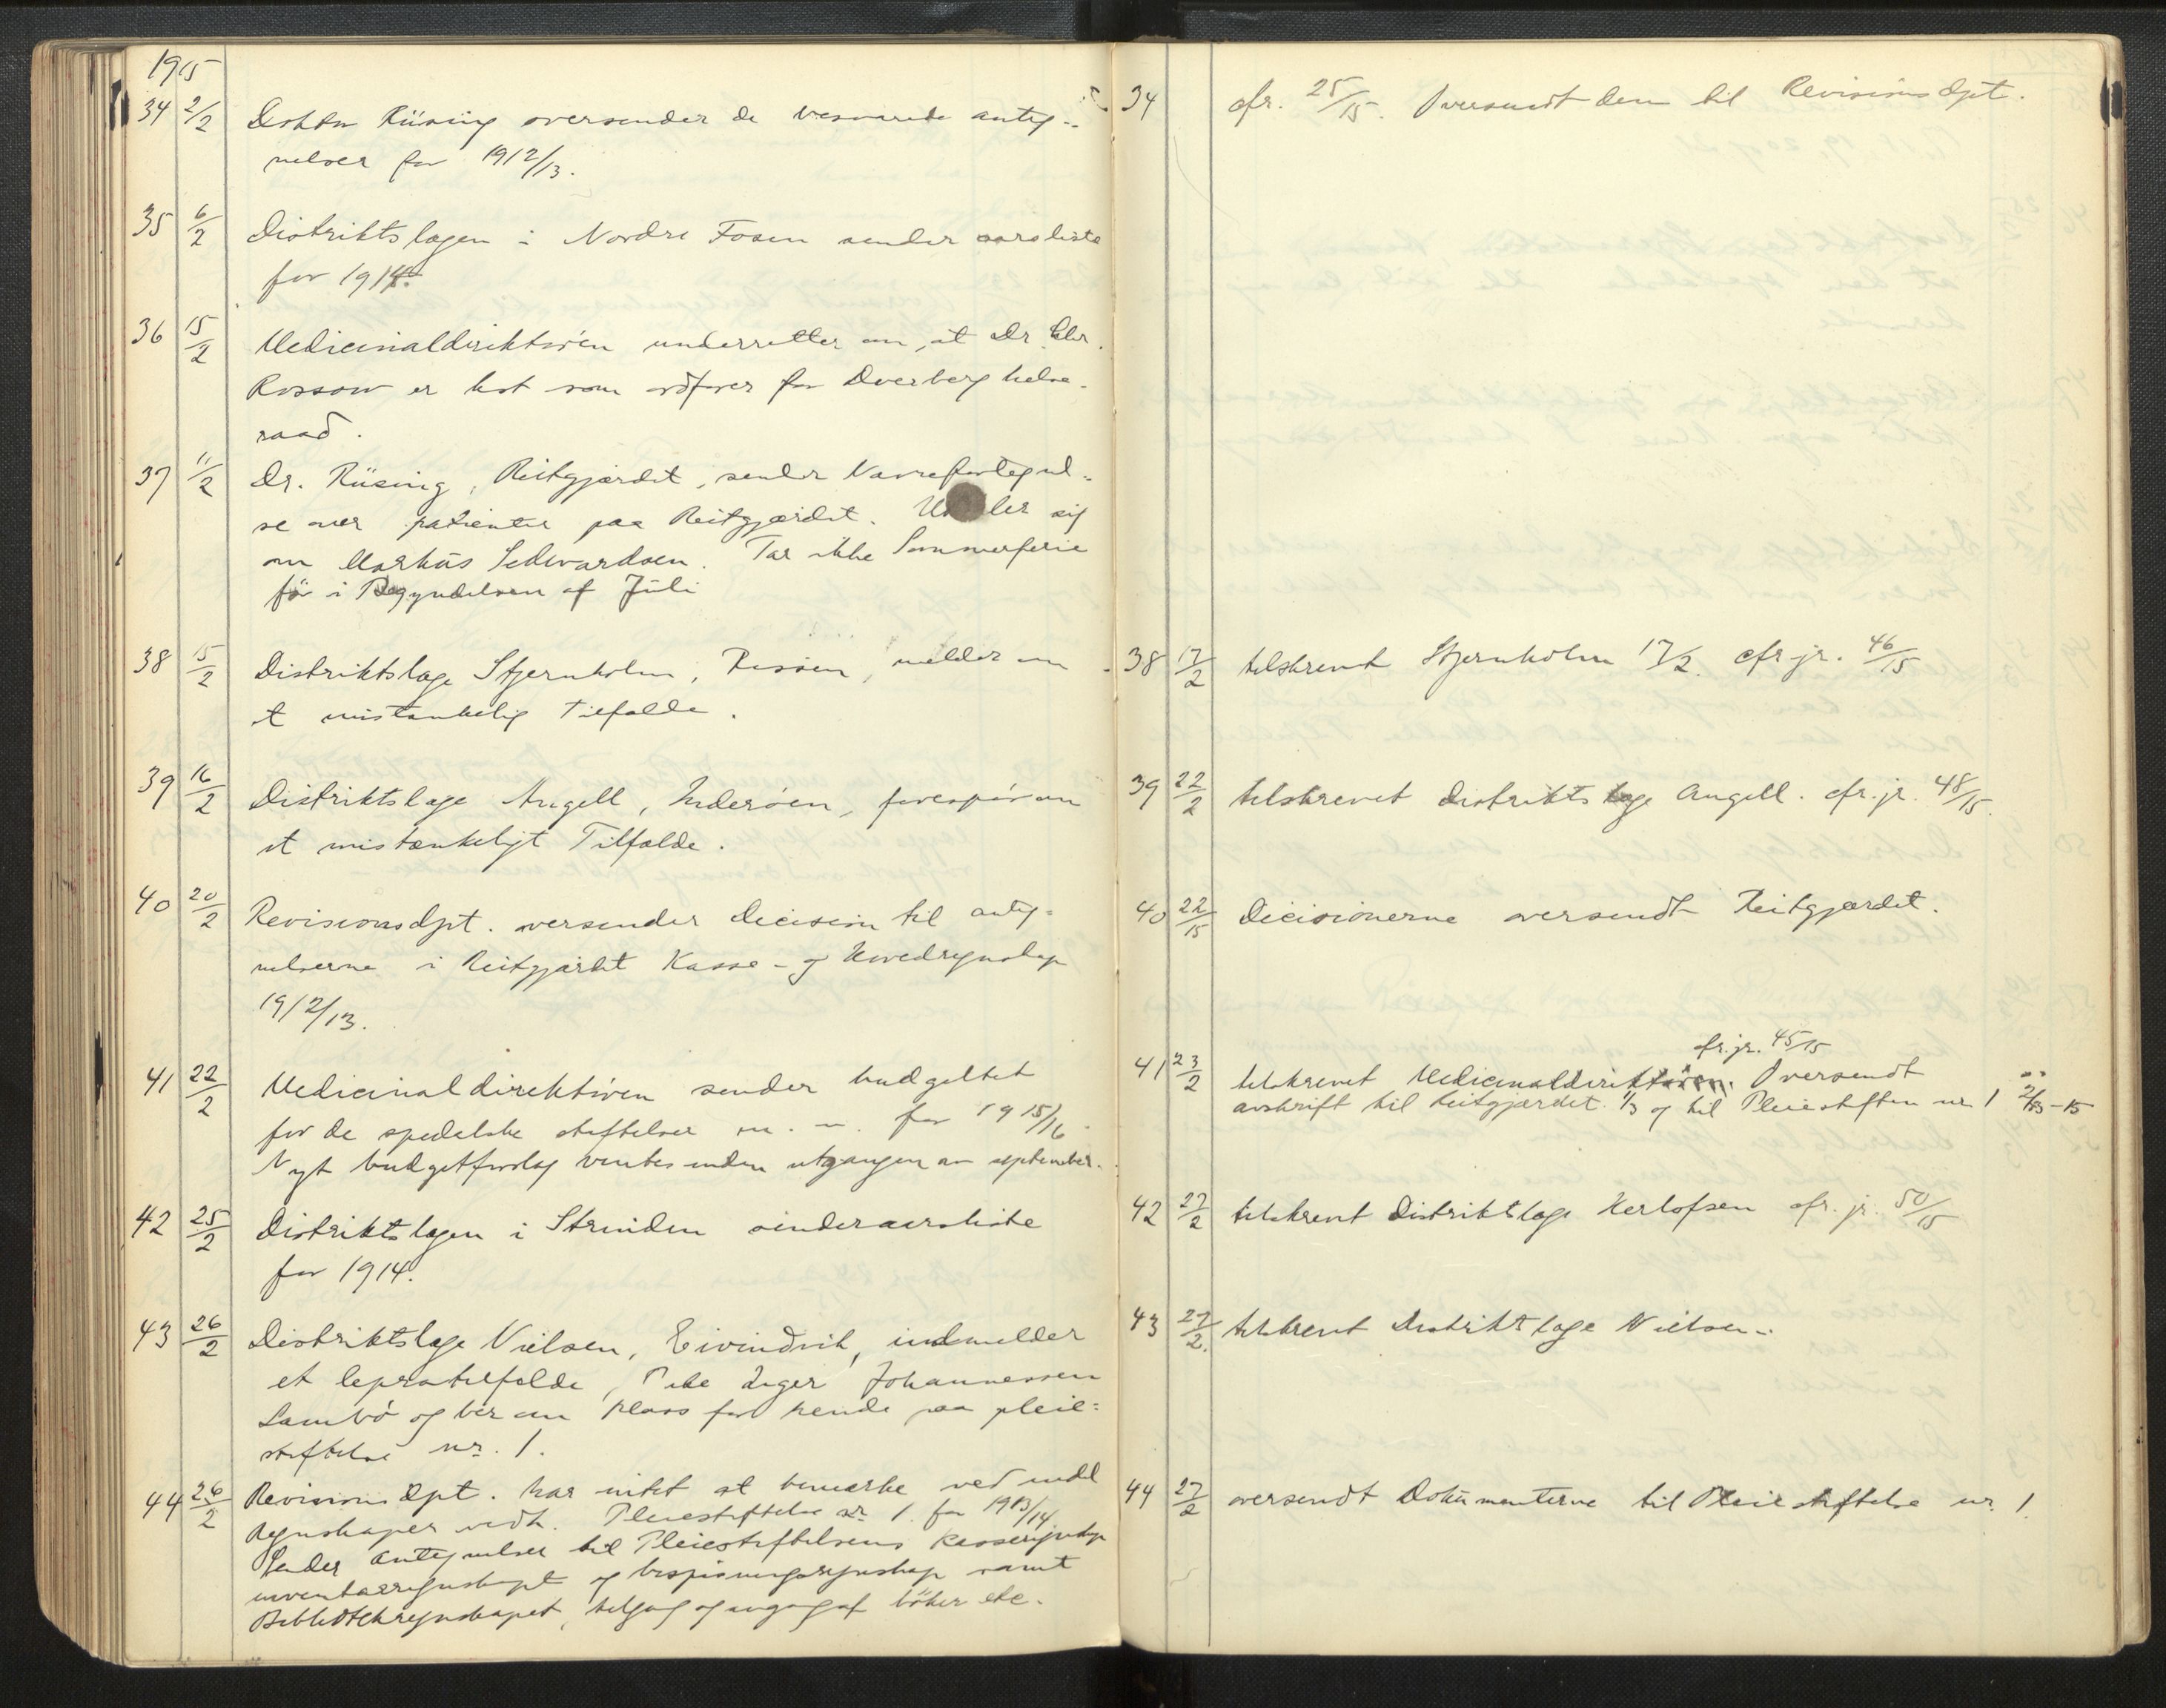 1915
34 2/2 Doktor Rüsing oversender de besvarede anteg-
nelser for 1912/13.
35 6/2 Distriktslægen i Nordre Fosen sender aarsliste
for 1914.
36 15/2 Medicinaldirektøren underretter om, at Dr. Chr.
Rossow er besk som ordfører for Dverberg helse-
raad.
37 11/2 Dr. Rüsing, Reitgjærdet, sender Navnefortegnel-
se over patienter paa Reitgjærdet. sig
om Markus Sedvardsen. Tar ikke Sommerferie
før i Begyndelsen af Juli
38 15/2 Distriktslæge Stjernholm, Rissen, melder om
et mistænkelig Tilfælde.
39 16/2 Distriktslæge Angell, Inderøen, forespør om
et mistænkeligt Tilfælde.
40 20/2 Revisionsdpt. oversender decision til anteg-
nelserne i Reitgjærdet Kasse- og Hovedregnskap
1912/13.
41 22/2 Medicinaldirektøren sender budgettet
for de spedalske stiftelser m. m. for 1915/16.
Nyt budgetforslag ventes inden utgangen av september.
42 25/2 Distriktslægen i Strinden sender aarsliste
for 1914.
43 26/2 Distriktslæge Nielsen, Eivindvik, indmelder
et lepratilfælde, Johannessen
Lambø og ber om plass for hende paa pleie-
stiftelse nr. 1.
44 26/2 Revisions dpt. har intet at bemærke ved indl
regnskaper vedk. Pleiestiftelse nr 1. for 1913/14.
Sender antegnelser til Pleiestiftelsens kasseregnskap
inventarregnskapet og bespisningsregnskap samt
Bibliotekregnskapet, tilgang og avgang af bøker etc.
34 cfr. 25/15. Oversendt dem til Revisionsdpt.
38 17/2 tilskrevet Stjernholm 17/2. cfr. jr. 46/15
39 22/2 tilskrevet distriktslæge Angell. cfr. jr. 48/15.
40 22/15 Decisionerne oversendt Reitgjærdet.
cfr. jr. 45/15
41 23/2 tilskrevet Medicinaldirektøren. Oversendt
avskrift til Reitgjærdet. 1/3 og til Pleiestiften nr 1 2/3-15
42 27/2 tilskrevet Distriktslæge Herlofsen cfr. jr. 50/15
43 27/2. tilskrevet Distriktslæge Nielsen.
44 27/2 oversendt Dokumenterne til Pleiestiftelse nr. 1.